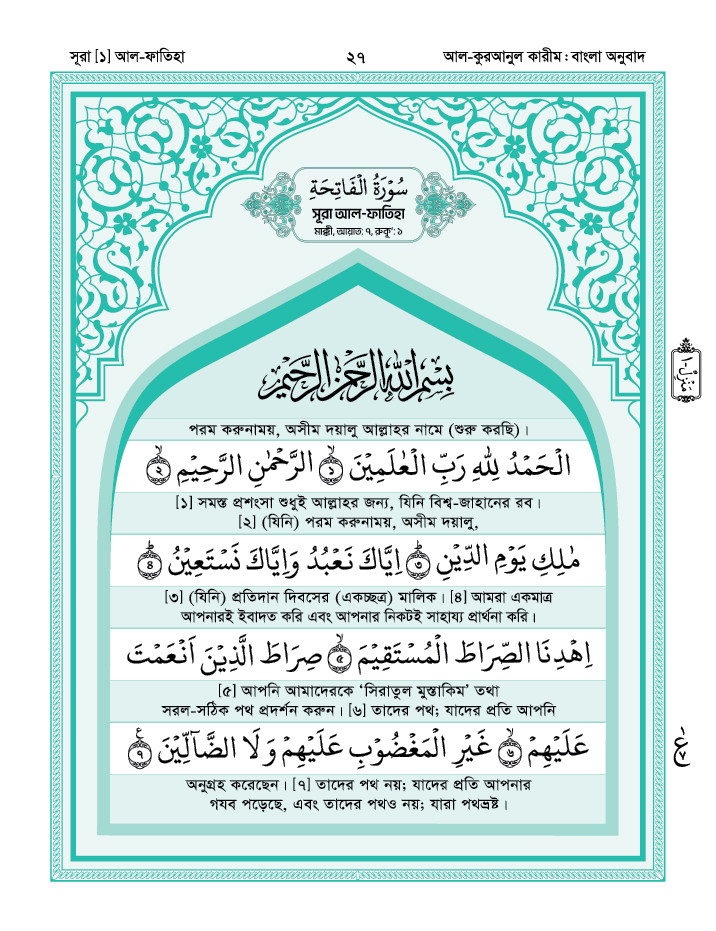 সূরা [১] আল-ফাতিহা ২৭ আল-কুরআনুল কারীম : বাংলা অনুবাদ
سُوْرَةُ الْفَاتِحَةِ
সূরা আল-ফাতিহা
মাক্কী, আয়াত: ৭, রুকূ‘: ১
بِسْمِ اللهِ الرَّحْمٰنِ الرَّحِيْمِ
পরম করুনাময়, অসীম দয়ালু আল্লাহর নামে (শুরু করছি)।
مَنْزِل ١
الْحَمْدُ لِلهِ رَبِّ الْعٰلَمِيْنَ ۙ﴿১﴾ الرَّحْمٰنِ الرَّحِيْمِ ۙ﴿২﴾
[১] সমস্ত প্রশংসা শুধুই আল্লাহর জন্য, যিনি বিশ্ব-জাহানের রব।
[২] (যিনি) পরম করুনাময়, অসীম দয়ালু,
مٰلِكِ يَوْمِ الدِّيْنِ ؕ﴿৩﴾ اِيَّاكَ نَعْبُدُ وَاِيَّاكَ نَسْتَعِيْنُ ؕ﴿৪﴾
[৩] (যিনি) প্রতিদান দিবসের (একচ্ছত্র) মালিক। [৪] আমরা একমাত্র
আপনারই ইবাদত করি এবং আপনার নিকটই সাহায্য প্রার্থনা করি।
اِهْدِنَا الصِّرَاطَ الْمُسْتَقِيْمَ ۙ﴿৫﴾ صِرَاطَ الَّذِيْنَ اَنْعَمْتَ
[৫] আপনি আমাদেরকে ‘সিরাতুল মুস্তাকিম’ তথা
সরল-সঠিক পথ প্রদর্শন করুন। [৬] তাদের পথ; যাদের প্রতি আপনি
عَلَيْهِمْ ۙ﴿৬﴾ غَيْرِ الْمَغْضُوْبِ عَلَيْهِمْ وَلَا الضَّآلِّيْنَ ﴿৭﴾
অনুগ্রহ করেছেন। [৭] তাদের পথ নয়; যাদের প্রতি আপনার
গযব পড়েছে, এবং তাদের পথও নয়; যারা পথভ্রষ্ট।